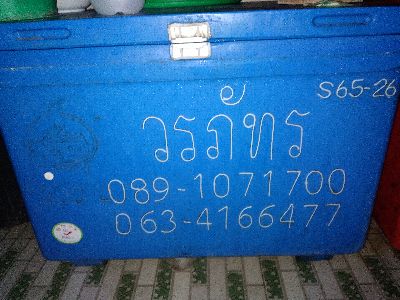 S65-26
วรภัทร
089-1071700
063-4166477